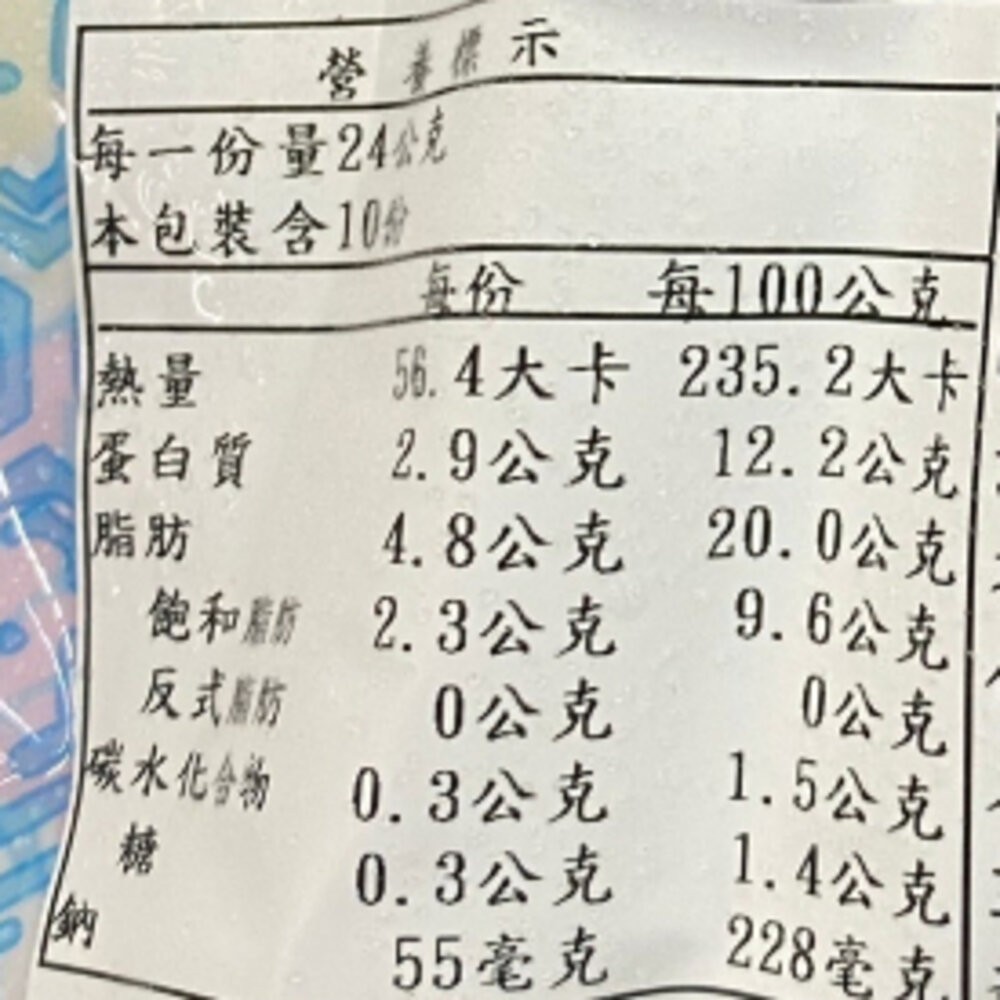 營養標示
每一份量24公克
本包裝含10份
每份 每100公克
熱量 56.4大卡 235.2大卡
蛋白質 2.9公克 12.2公克
脂肪 4.8公克 20.0公克
飽和脂肪 2.3公克 9.6公克
反式脂肪 0公克 0公克
碳水化合物 0.3公克 1.5公克
糖 0.3公克 1.4公克
鈉 55毫克 228毫克